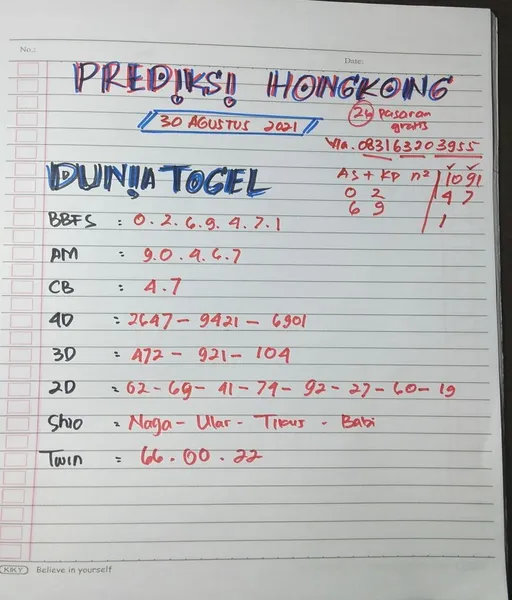 No.:
Date:
PREDIKSI HONGKONG
30 AGUSTUS 2021
24 Pasaran
gratis
Via. 083163203955
DUNIA TOGEL
AS + KP n² 1091
0 2 4 7
6 9 1
BBFS : 0.2.6.9.4.7.1
AM : 9.0.4.6.7
CB : 4.7
4D = 2647 - 9421 - 6901
3D = 472 - 921 - 104
2D = 62 - 69 - 41 - 74 - 92 - 27 - 60 - 19
Shio = Naga - Ular - Tikus - Babi
Twin = 66.00.22
KIKY Believe in yourself